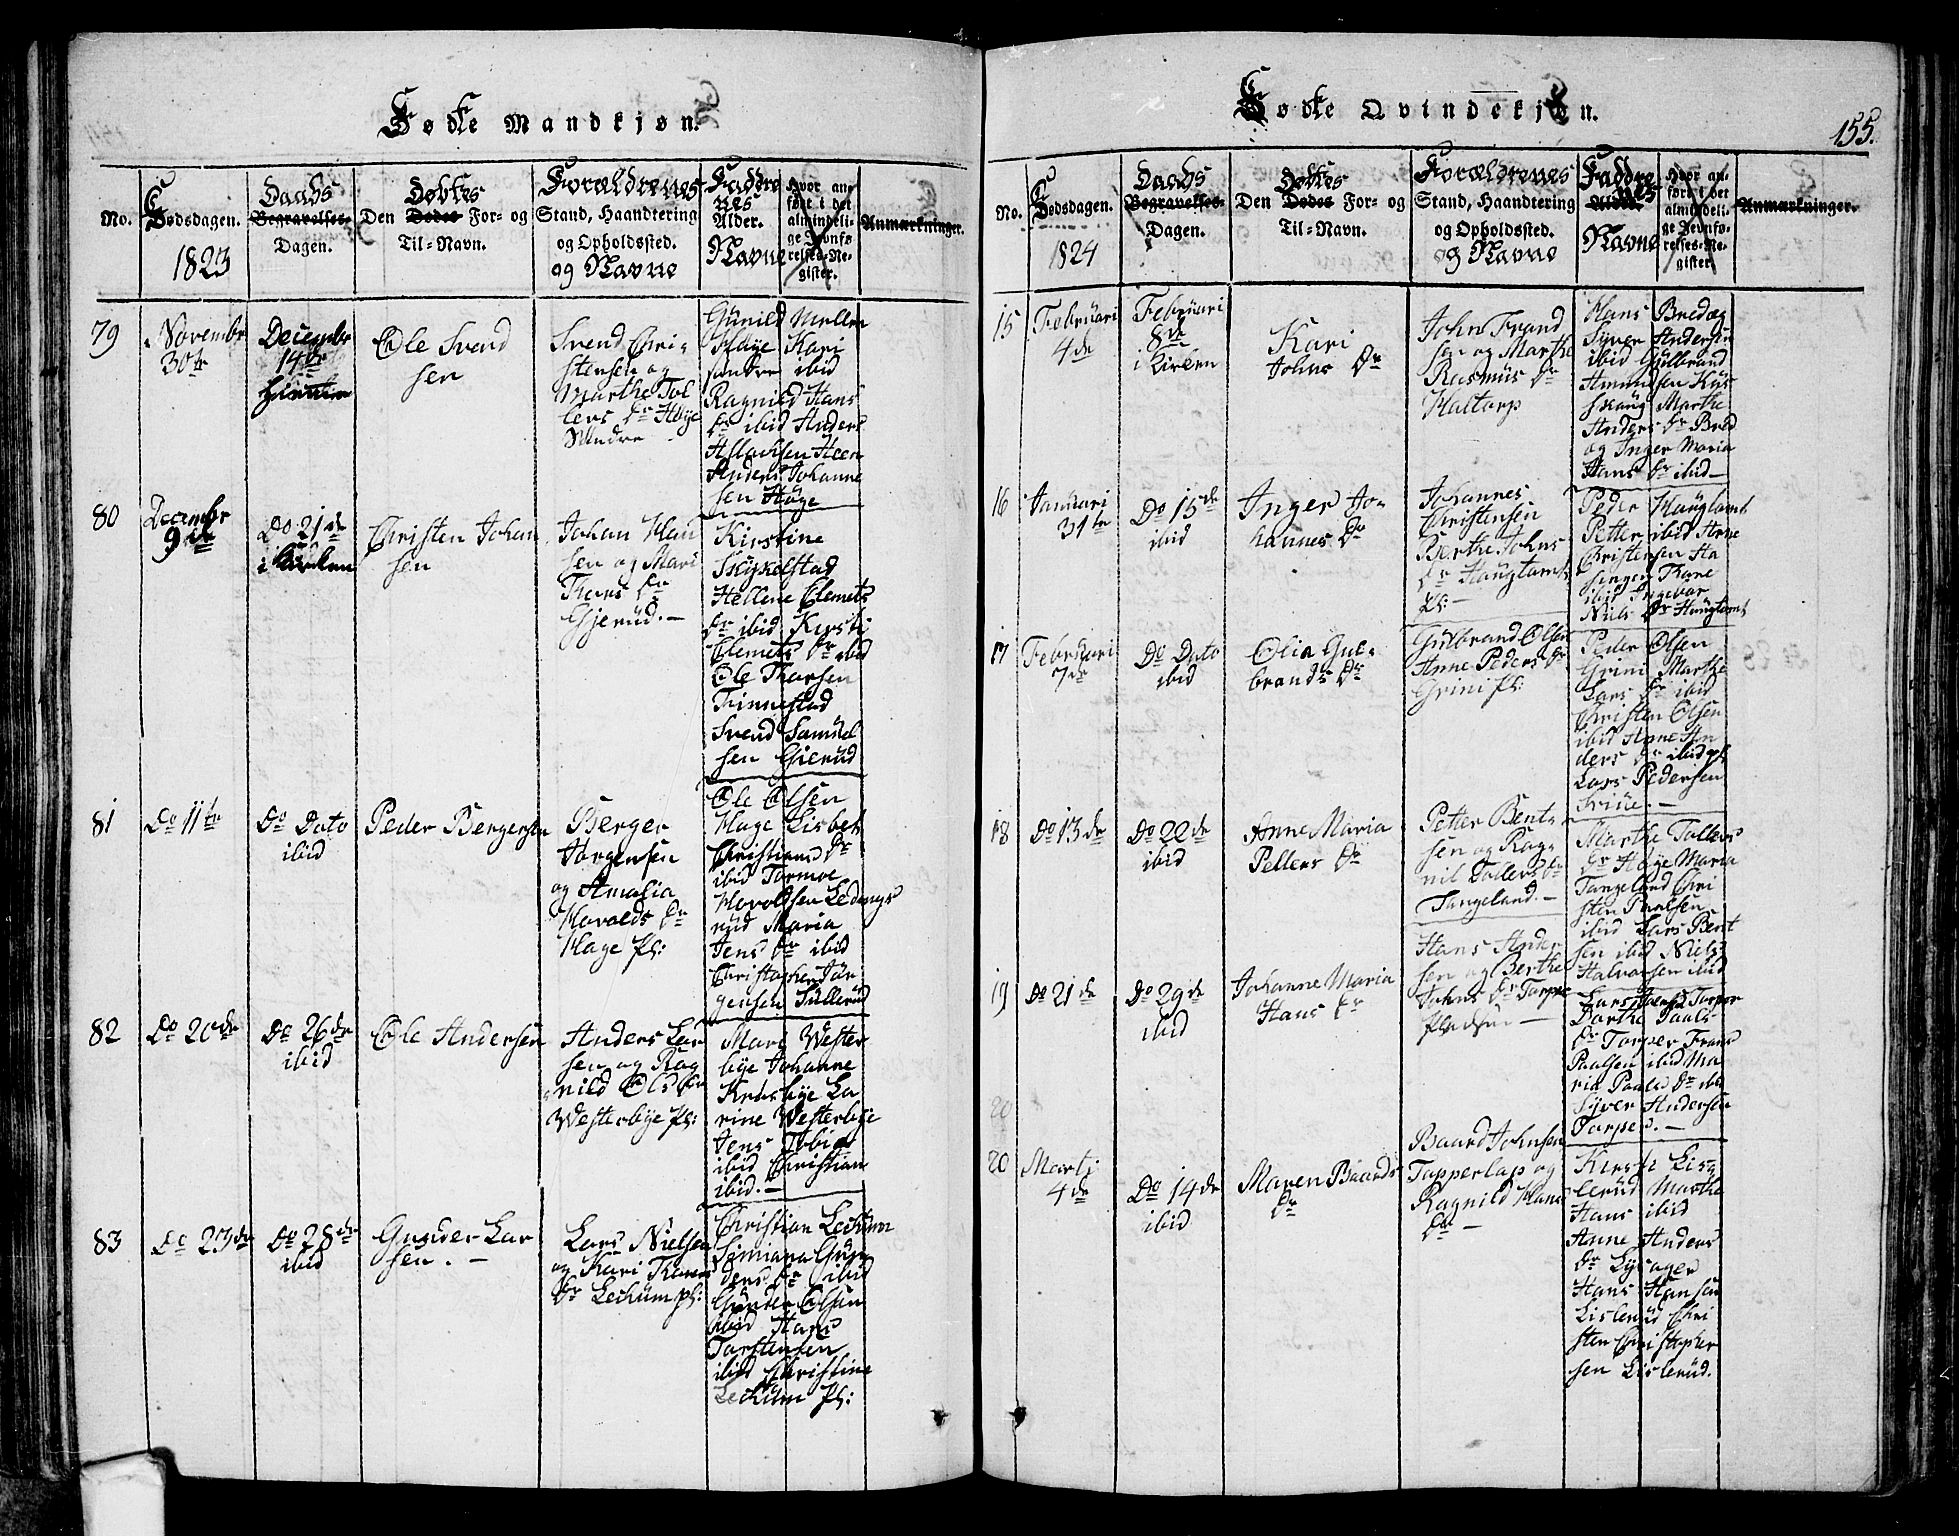 Fødte Mandkjøn.
No.
Fødsdagen.
1823
Daabs
Begravelses-
Dagen.
Døbtes
Den Dødes For- og
Til-Navn.
Forældrenes
Stand, Haandtering
og Opholdssted.
og Navne
Faddre
nes
Alder.
Navne
Hvor an-
ført i det
almindeli-
ge Jevnfø-
relses-Re-
gister.
Anmærkninger.
79
Novembr
30te
Decembr
14de
Ole Svend
sen
Svend Chri-
stensen og
Marthe Tol
lers Dr Høye
Søndre
Günild Mellem
Høye Kari
søndre ibid
Ragnild Hans
Dr ibid Anders
Aslavsen Høen
Anders Johanne
sen Høye
80
Decembr
9de
Do 21de
i Kirken
Christen Johan
sen
Johan Han
sen og Mari
Thores Dr
Gjerüd. -
Kirstine
Skykelstad
Hellene Clemets
Dr ibid Kirsti
Clemets Dr ibid
Ole Thorsen
Finnestad
Svend Samüel
sen Gierüd
81
Do 11te
Do Dato
ibid
Peder Bergersen
Berger
Jørgensen
og Amalia
Haralds Dr
Hage Pl:
Ole Olsen
Hage Lisbet
Christians Dr
ibid Tormoe
Haroldsen Ledengs
rüd Maria
Jens Dr ibid
Christopher Jör
gensen Tüllerüd
82
Do 20de
Do 26de
ibid
Ole Andersen
Anders Lar
sen og Rag
nild Ols Dr
Westerbye Pl:
Mari Wester
bye Johanne
Krosbye La
rine Westerbye
Jens Tobias
ibid Christian
ibid. -
83
Do 23de
Do 28de
ibid
Gunder Lar
sen. -
Lars Nielsen
og Kari Thores
Dr Leküm pl:
Christian Leküm
Simmana Gün
ders Dr ibid
Günder Olsen
ibid Hans
Torstensen
ibid Christine
Leküm Pl:
Fødte Qvindekjøn.
155.
No.
Fødsdagen.
1824
Daabs
Begravelses-
Dagen.
Døbtes
Den Dødes For- og
Til-Navn.
Forældrenes
Stand, Haandtering
og Opholdssted.
og Navne
Faddre
nes
Alder.
Navne
Hvor an-
ført i det
almindeli-
ge Jevnfø-
relses-Re-
gister.
Anmærkninger.
15
Februari
4de
Februari
8de
i Kirken
Kari
Johns Dr
John Frand
sen og Marthe
Rasmüs Dr
Haltorp
Hans Bredeg
Syver Andersen
ibid Gülbrand
Amundsen Küs
skoüg Marthe
Anders Dr Bred
og Inger Maria
Hans Dr ibid -
16
Januari
31te
Do 15de
ibid
Inger Jo-
hannes Dr
Johannes
Christensen
Berthe Johns
Dr Haugtomt
Pl: -
Peder Haugtomt
Petter ibid Arne
Cristensen Ha
singen Thore
ibid Ingebor
Niels Dr Haugtomt
17
Februari
7de
Do Dato
ibid
Olia Gul-
brands Dr
Gülbrand Olsen
Anne Peders Dr
Grini Pl:
Peder Olsen
Grini Marthe
Lars Dr ibid
Christen Olsen
ibid Anne An
ders Dr ibid pl
Lars Pedersen
18
Do 13de
Do 22de
ibid
Anne Maria
Petters Dr
Petter Bent-
sen og Rag-
nil Tollers Dr
Tangeland. -
Marthe Tollers
Dr Høye Maria
Tangeland Chri
sten Paalsen
ibid Lars Bent
sen ibid Niels
Halvorsen ibid
19
Do 21de
Do 29de
ibid
Johanne Maria
Hans Dr
Hans Ander
sen og Berthe
Johns Dr Torper
Pladsen -
Dorthe Paals
Dr Torper Frans
Paalsen ibid Ma
ria Paals Dr ibid
Syver Andersen
Torper. -
20
20
Marti
4de
Do 14de
ibid
Maren Baards
Dr
Baard Johnsen
Topperlap og
Ragnild Hans
Dr -
Kirsti Lis-
lerüd Marthe
Hans ibid
Anne Anders
Dr Lysager
Hans Hansen
Lislerüd Chri
sten Christopher
sen Lislerüd.